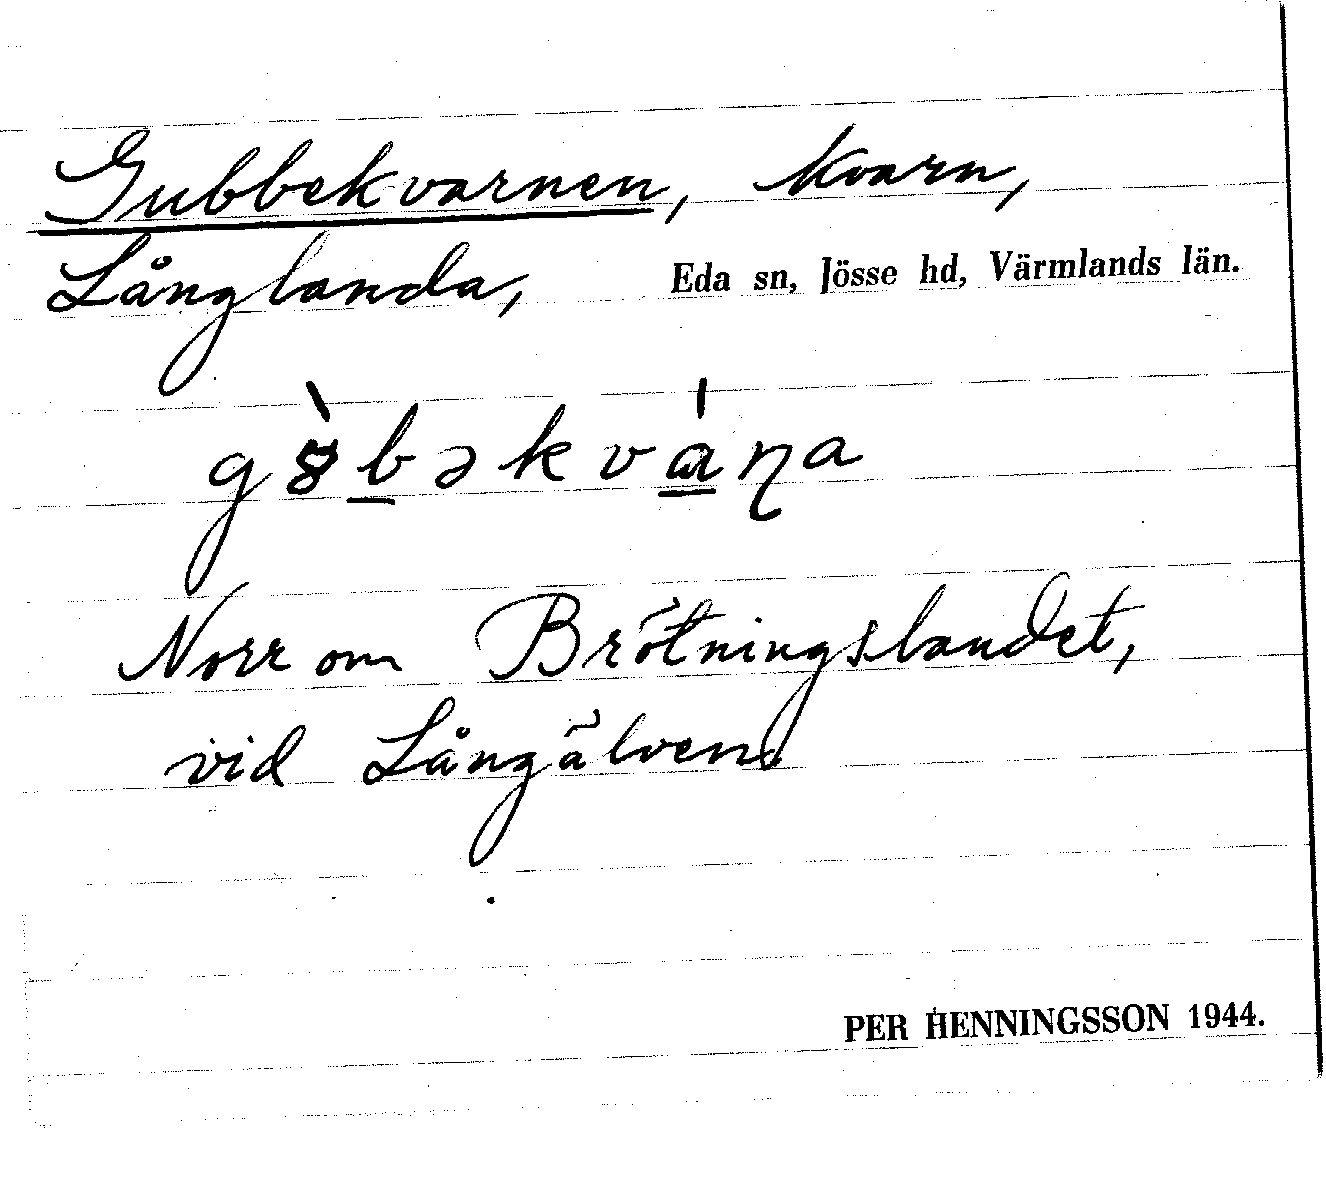 Gubbekvarnen, kvarn,
Långlanda, Eda sn, Jösse hd, Värmlands län.
g8̀b̲əkvá̲ɳa
Norr om Brötningslandet,
vid Långälven.
PER HENNINGSSON 1944.